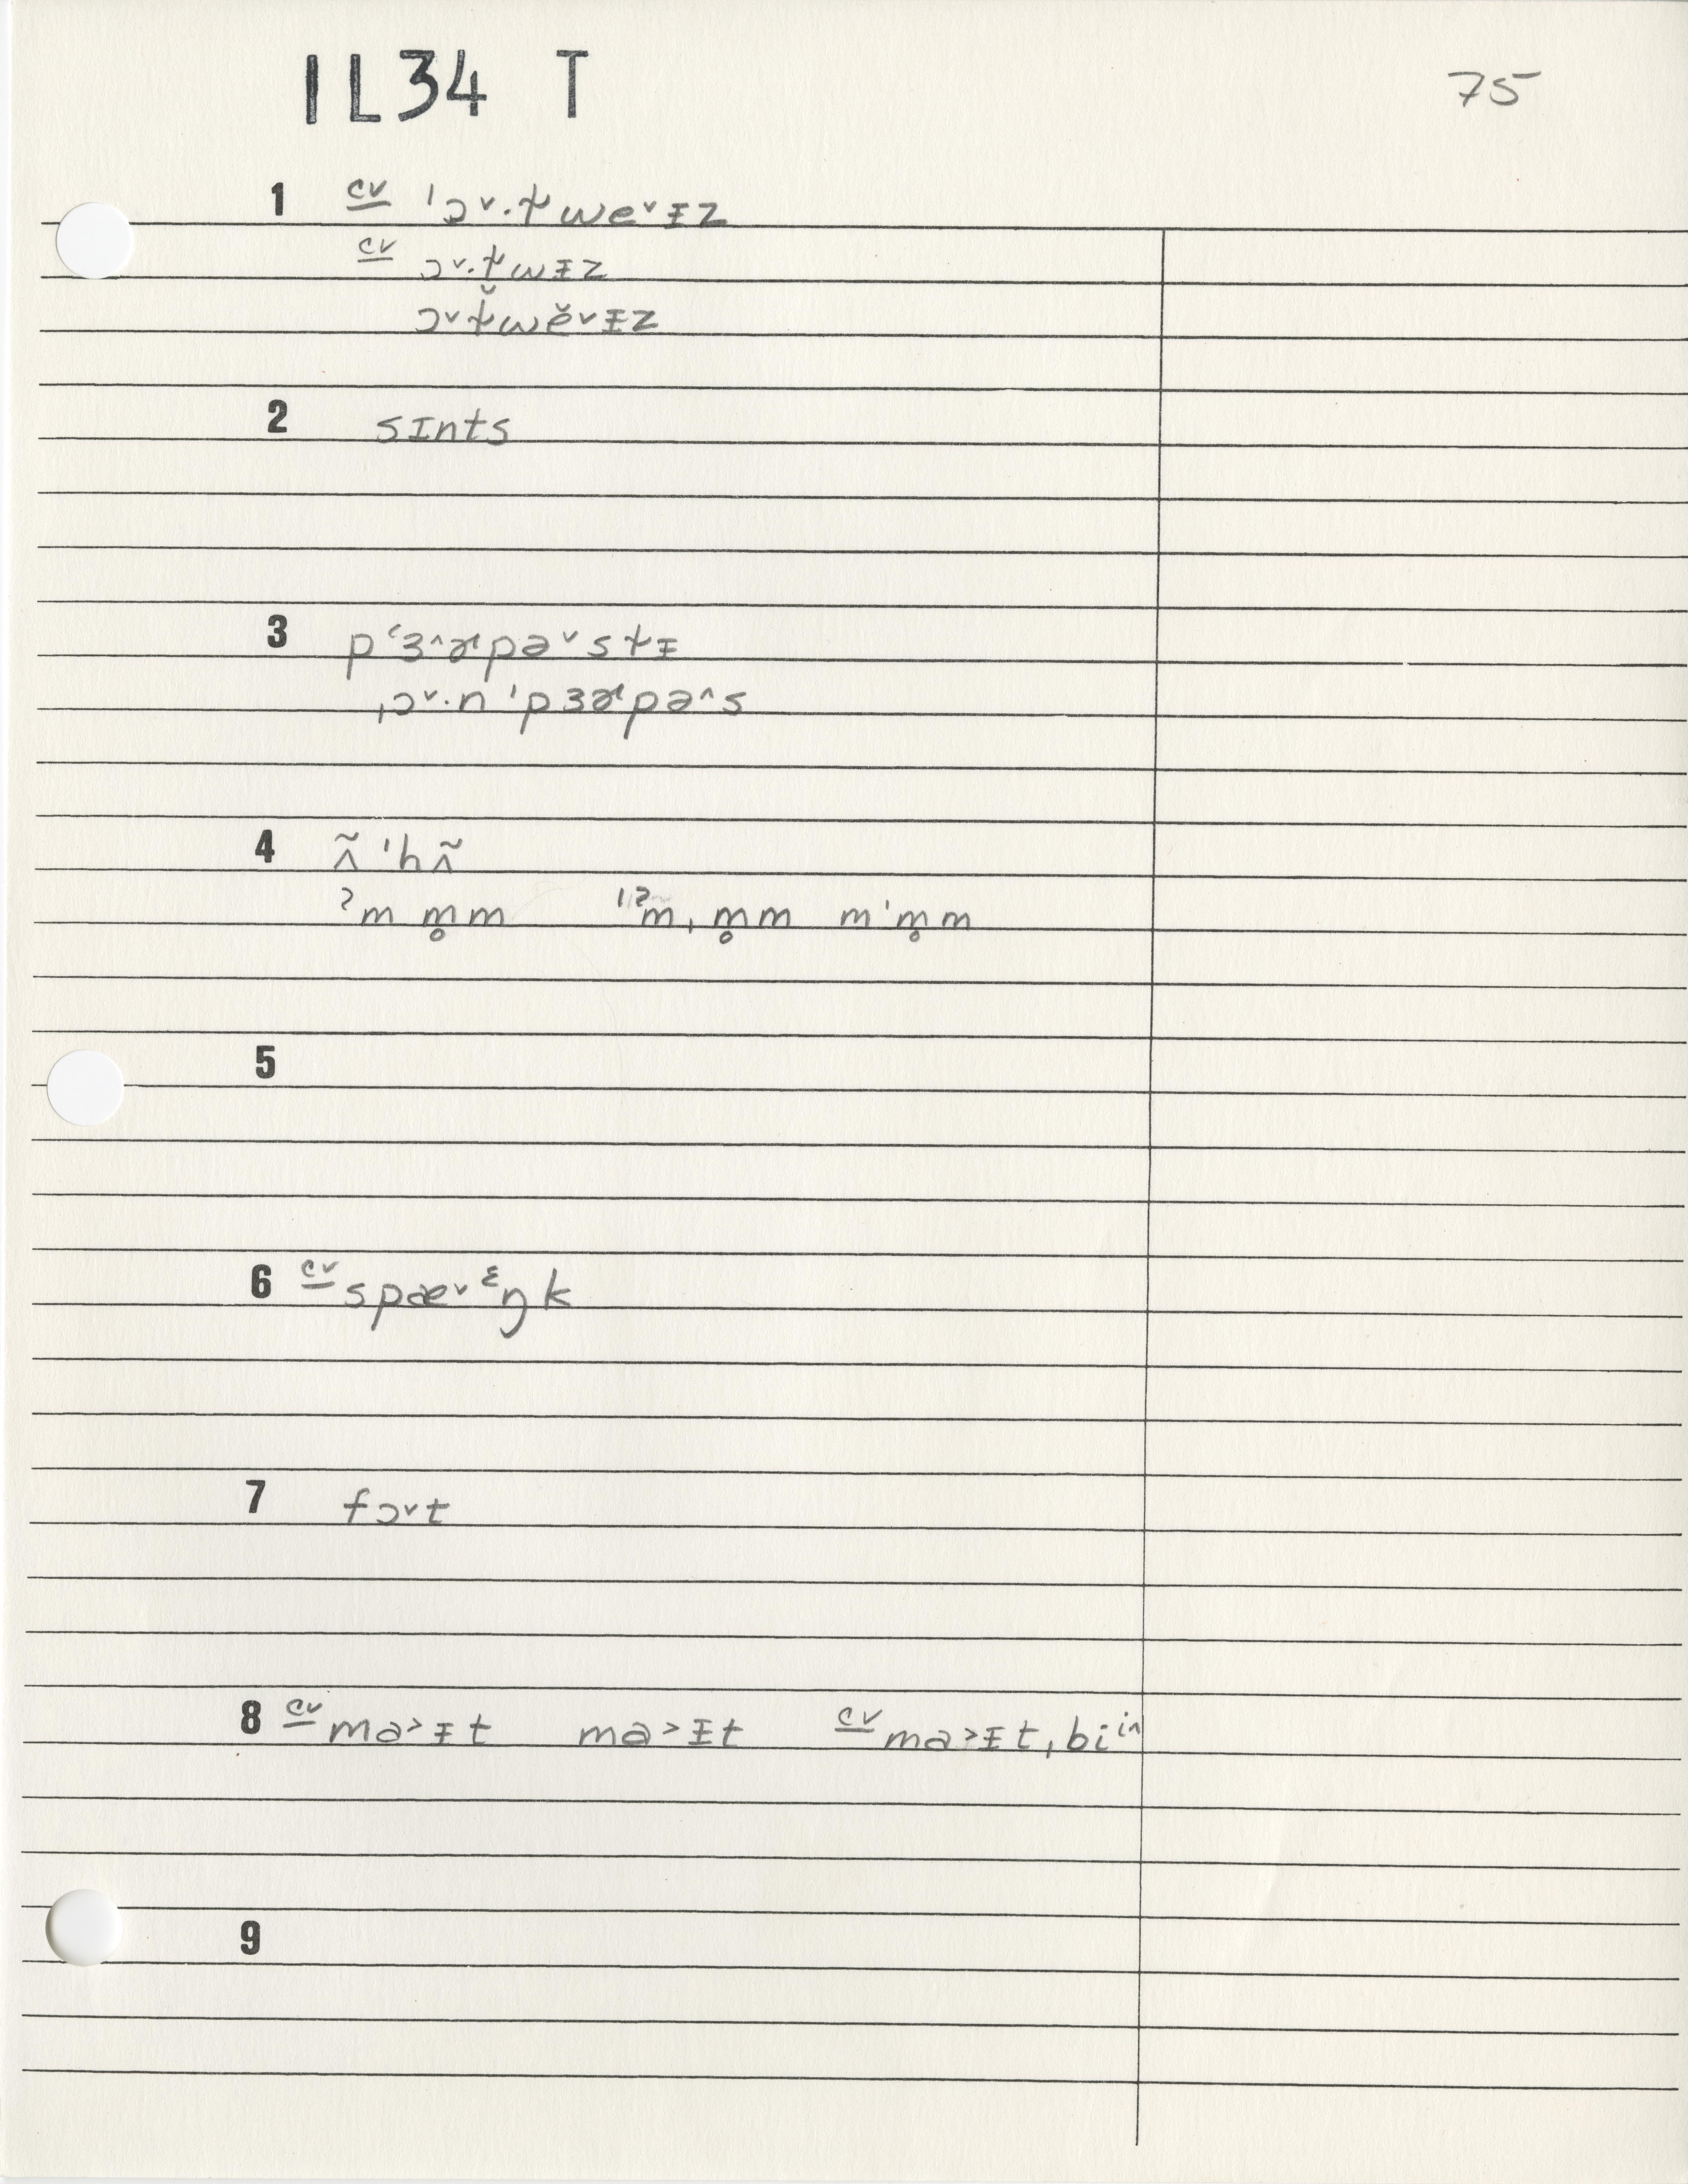 IL34 T
75
1 cv ˈɔ˅·ɫwe˅ɪz
cv ɔ˅·ɫwɪz
ɔ˅ɫ̆wĕ˅ɪz
2 sɪnts
3 pʻɜ˄ɚpə˅sɫɪ
ˌɔ˅·n ˈpɜɚpə˄s
4 ʌ̃ ˈhʌ̃
ʔm m̥m ˈʔm ˌm̥m mˈm̥m
5
6 cv spæ˅ᵋŋk
7 fɔ˅t
8 cv ma˃ɪt ma˃ɪt cv ma˃ɪtˌbiⁱⁿ
9